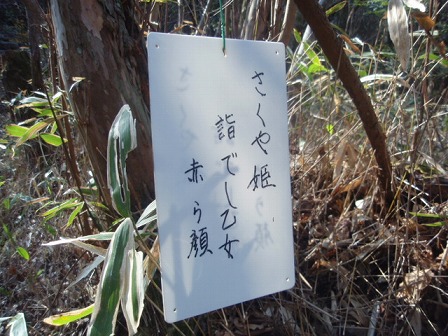 さくや姫
詣でし乙女
赤ら顔